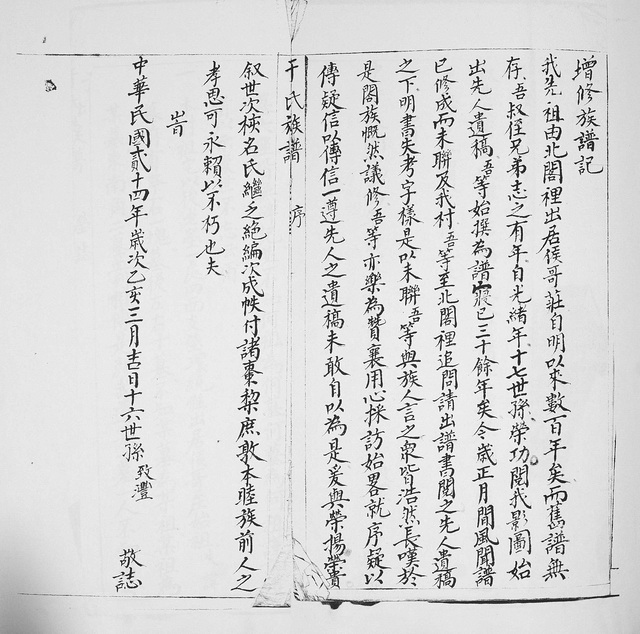 增修族譜記
我先祖由北閣裡出居侯哥莊自明以來數百年矣而舊譜無
存吾叔侄兄弟志之有年自光緒年十七世孫榮功閱我影圖始
出先人遺稿吾等始撰為譜寢已三十餘年矣今歲正月間風聞譜
已修成而未聯及我村吾等至北閣裡追問請出譜書閱之先人遺稿
之下明書失考字樣是以未聯吾等與族人言之衆皆浩然長嘆於
是閤族慨然議修吾等亦樂為贊襄用心採訪始畧就序疑以
傳疑信以傳信一遵先人之遺稿未敢自以為是爰與榮揚榮賓
于氏族譜 序
叙世次核名氏繼之絶編次成帙付諸棗棃庶敦本睦族前人之
孝思可永賴以不朽也夫
旹
中華民國貳十四年歲次乙亥三月吉日十六世孫致灃 敬誌